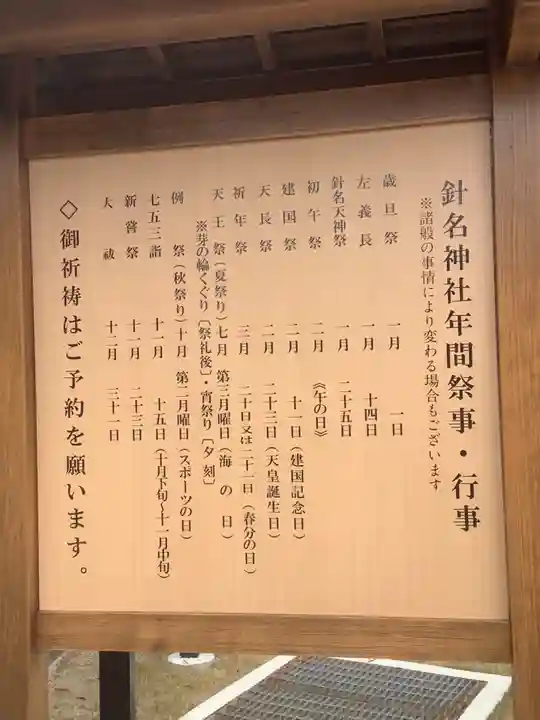 針名神社年間祭事・行事
※諸般の事情により変わる場合もございます
歳旦祭 一月 一日
左義長 一月 十四日
針名天神祭 一月 二十五日
初午祭 二月 《午の日》
建国祭 二月 十一日(建国記念日)
天長祭 二月 二十三日(天皇誕生日)
祈年祭 三月 二十日又は二十一日(春分の日)
天王祭(夏祭り)七月 第三月曜日(海の日)
※芽の輪くぐり〔祭礼後〕・宵祭り〔夕刻〕
例祭(秋祭り)十月 第二月曜日(スポーツの日)
七五三詣 十一月 十五日(十月下旬〜十一月中旬)
新嘗祭 十一月 二十三日
大祓 十二月 三十一日
◇御祈祷はご予約を願います。